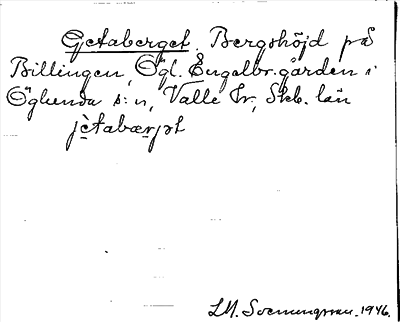 Getaberget. Bergshöjd på
Billingen, Ögl. Engelbr.gården i
Öglunda s:n, Valle hr, Skb. län
jètabærjət
LM. Svennungsson. 1946.